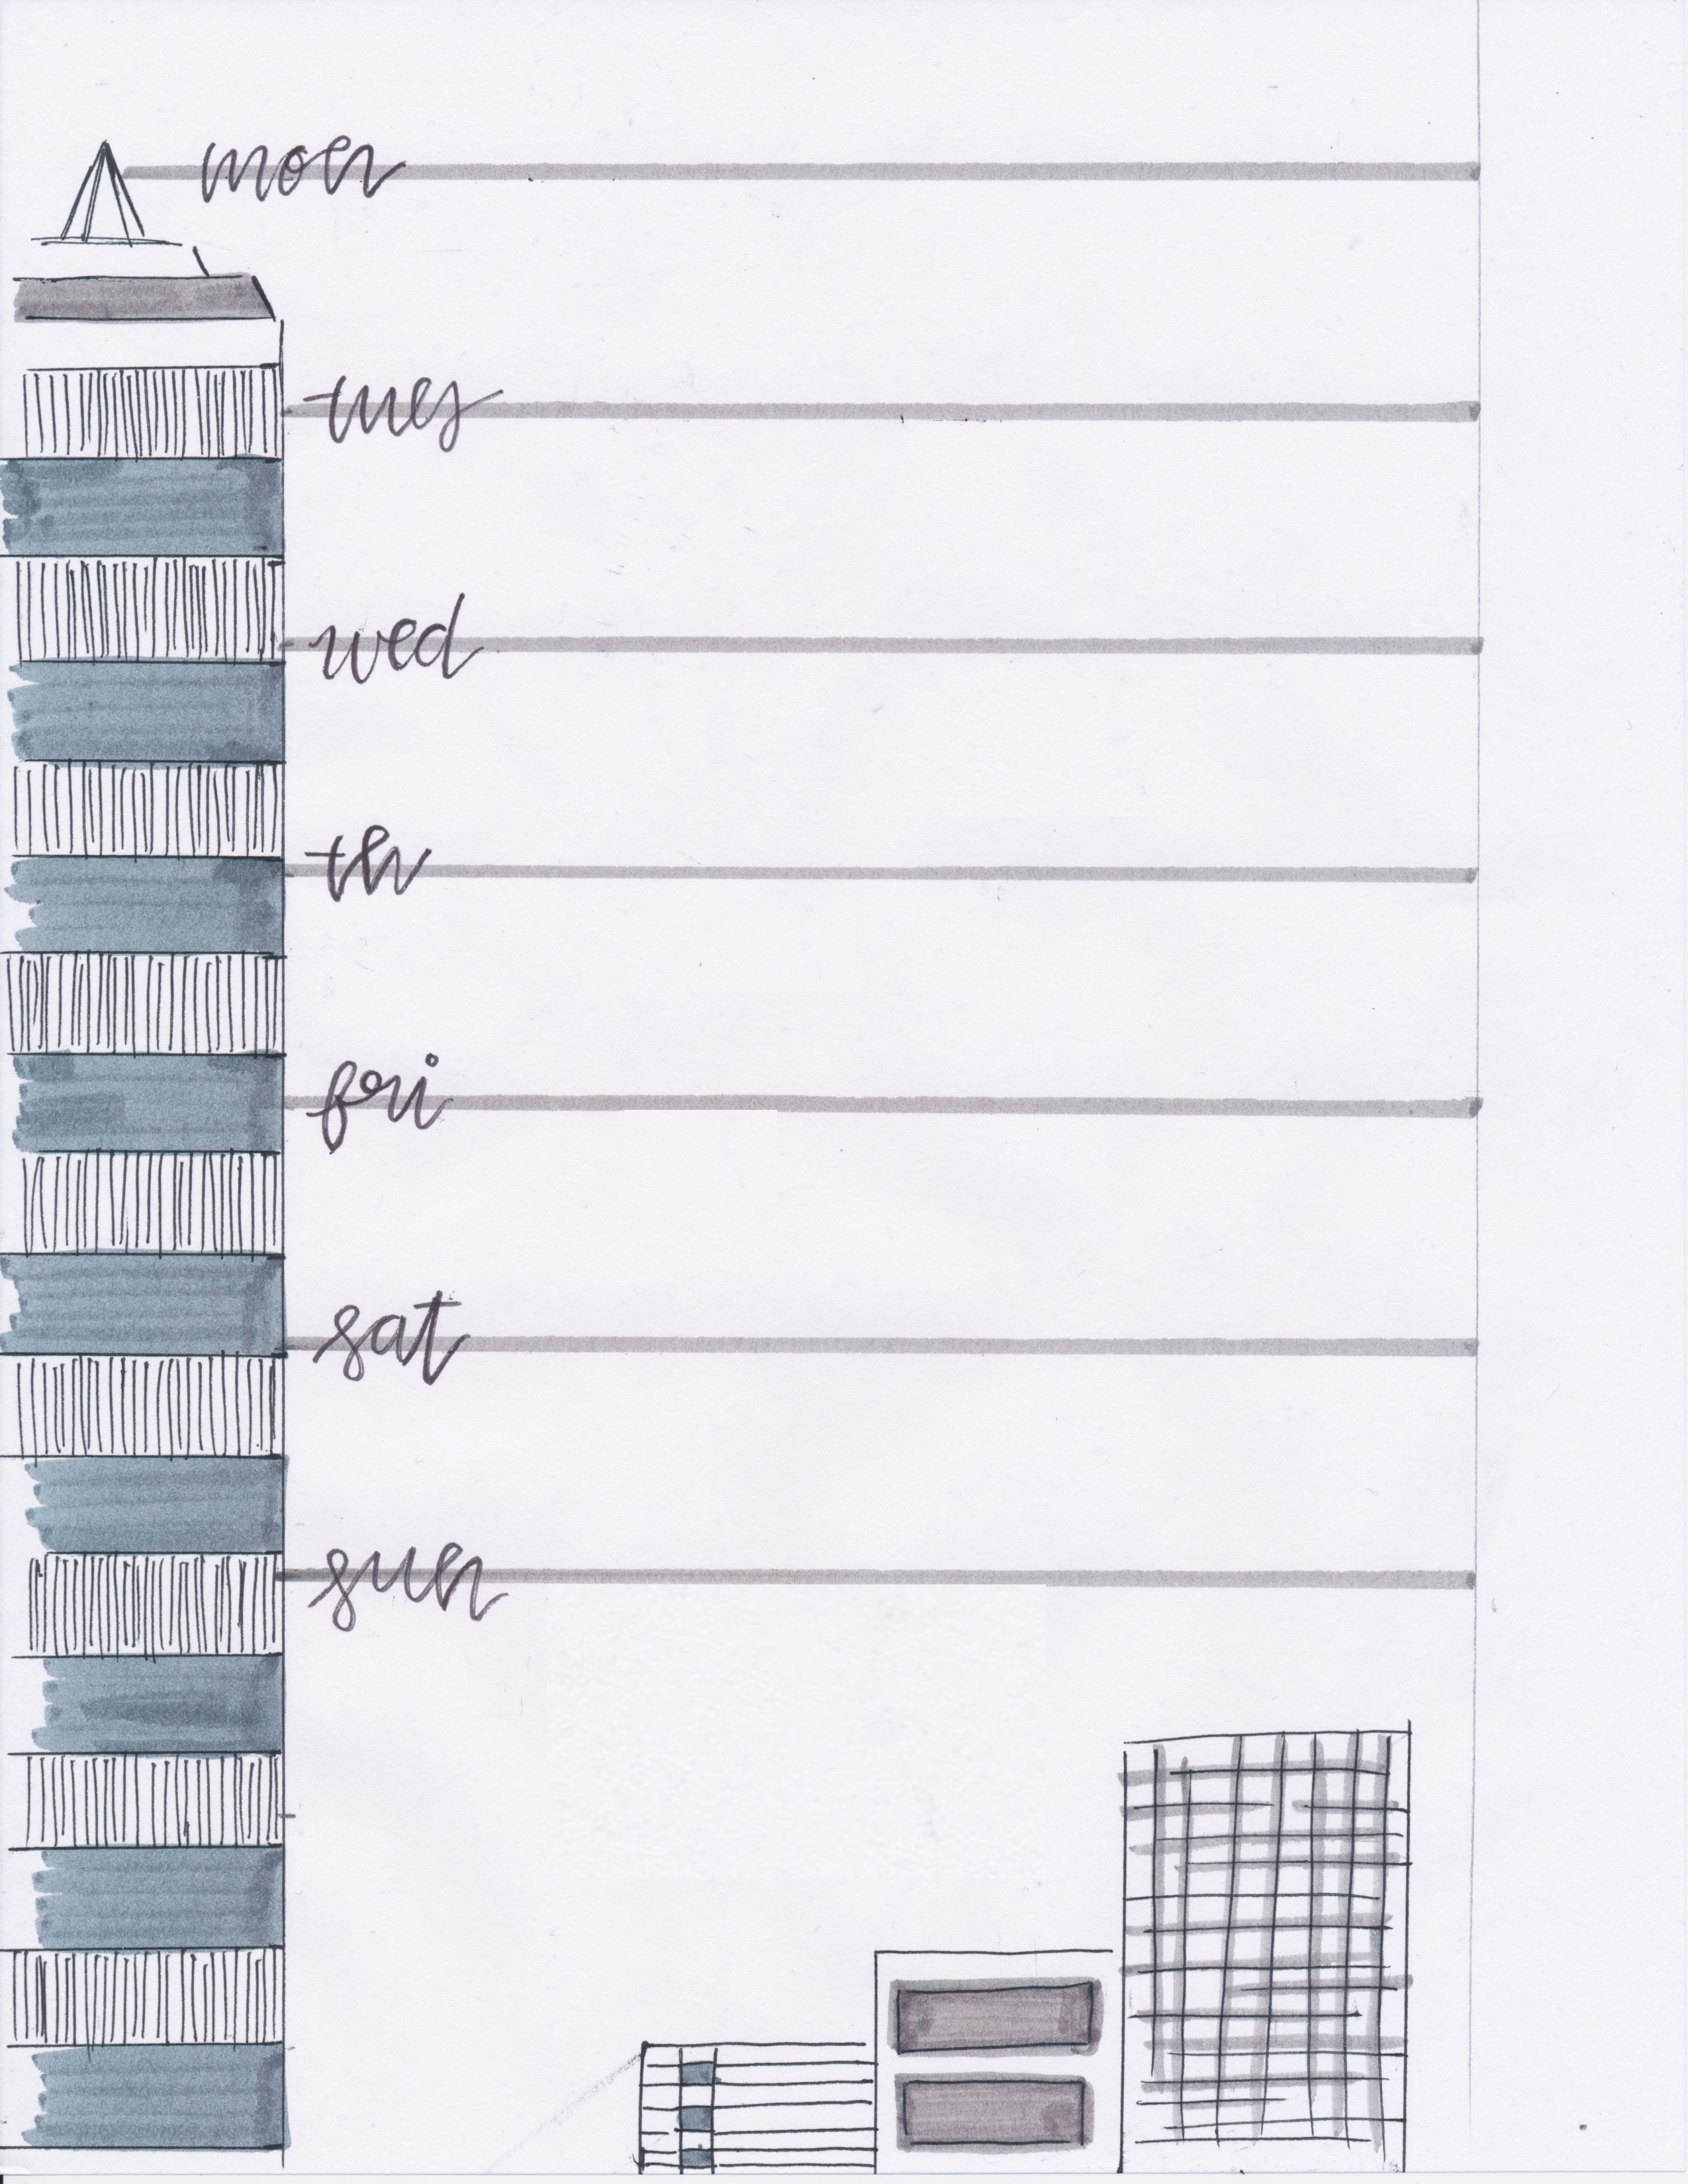 mon
tues
wed
th
fri
sat
sun